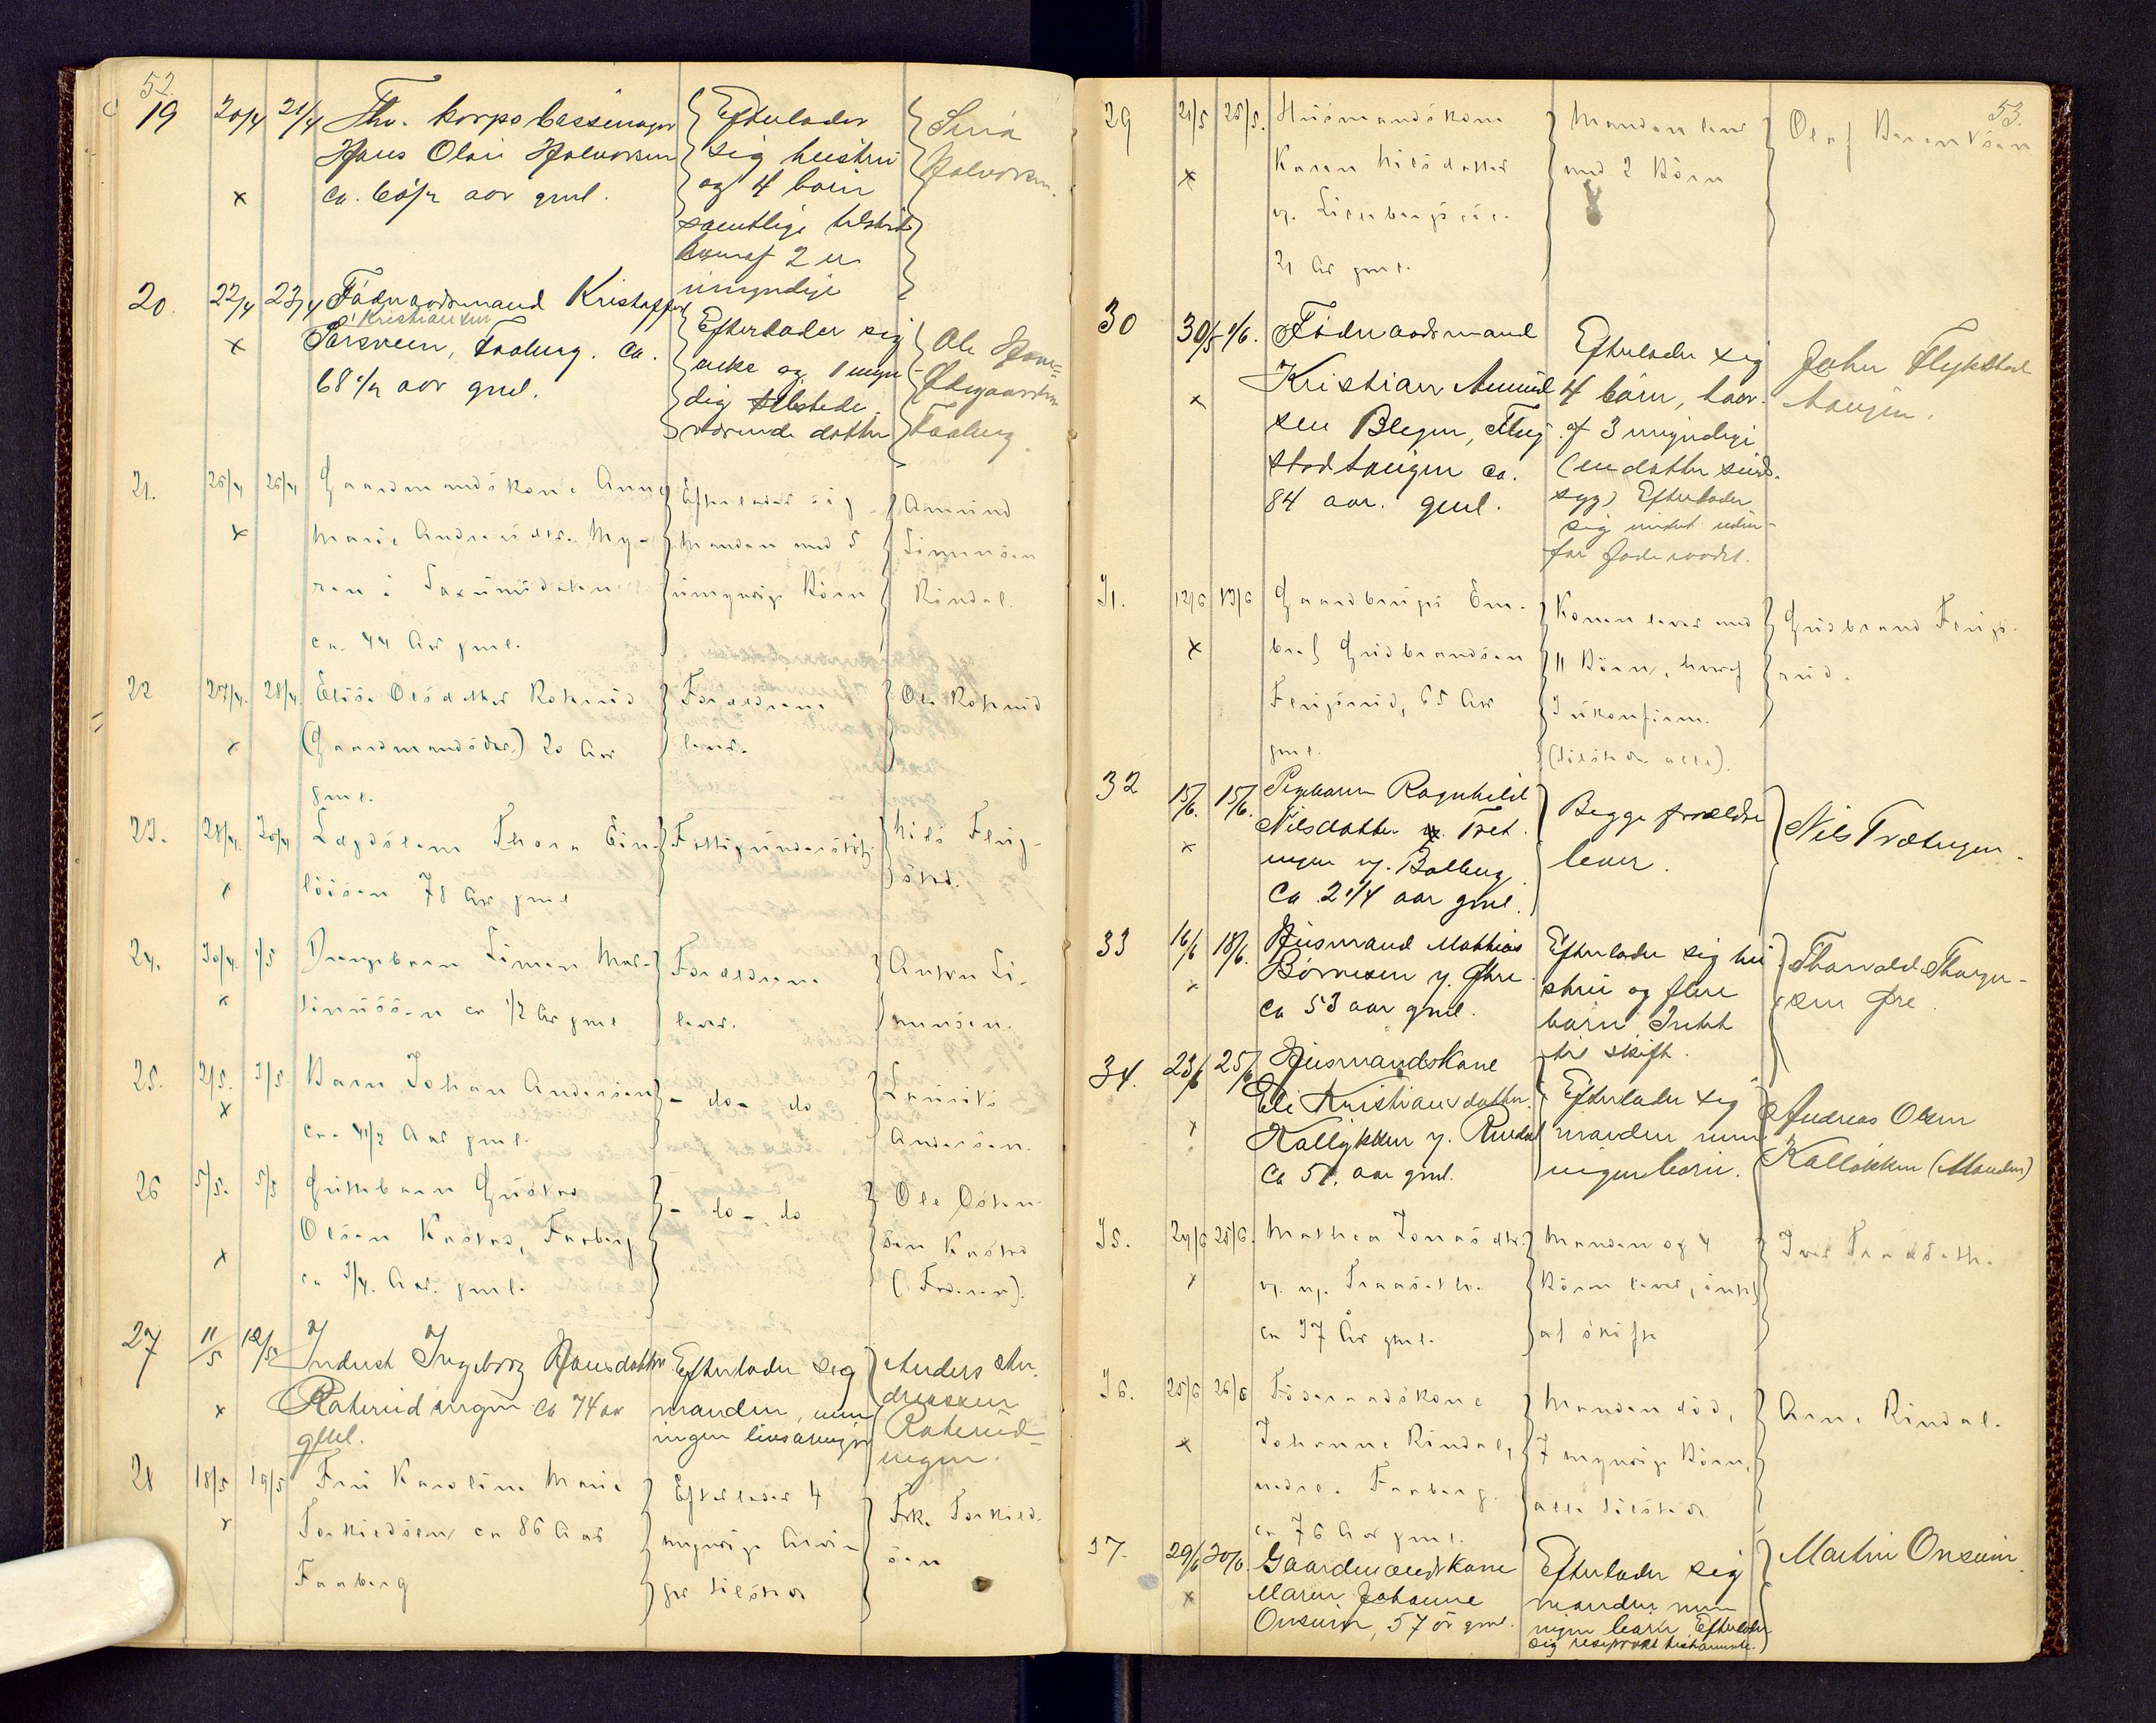 52.
19 20/4 21/4 Fhv. korps
Hans Olai Halvorsen
ca. 60 1/2 aar gml.
Efterlader
sig hustru
og 4 børn
samtlige tilstede
hvoraf 2 er
umyndige
Halvorsen.
20. 22/4 23/4 Føderaadsmand Kristoffer
Kristiansen
Sørsveen, Faaberg. ca.
68 1/2 aar gml.
Efterlader sig
enke og 1 myn-
dig tilstede
værende datter
Ole
Faaberg
21. 25/4 26/4 Gaardmandskone Anne
Marie Andreasdtr. My-
ren i Saxumsdalen
ca. 44 Aar gml.
Efterlader sig
Manden med 5
umyndige Børn
Amund
Simensen
Rindal.
22 27/4. 28/4 Elise Olsdatter Roterud
(Gaardmandsdtr.) 20 Aar
gml.
Forældrene
lever.
Ole Roterud
23. 28/4 30/4 Lægdslem Thora Ein-
78 Aar gml
Fattigunderstøt.
Nils Flug-
stad.
24. 30/4. 1/5 Drengebarn Simen Mar-
tinussen ca 1/2 Aar gml
Forældrene
lever.
Anton Si-
mensen.
25. 2/5. 3/5 Barn Johan Andersen
ca. 4 1/2 Aar gml.
- do - do
Laurits
Andersen.
26 5/5. 5/5 Guttebarn Gustav
Olsen Kastad, Faaberg
ca 3/4. Aar. gml.
- do - do
Ole Osten-
sen Kastad
(Faderen).
27 11/5 12/5 Inderst Ingeborg Hansdatter
Roterudengen ca 74 aar
gml.
Efterlader sig
manden, men
ingen livsarvinger
Anders An-
dreassen
Roterud-
engen.
28 18/5 19/5 Fru Karoline Marie
Torkildsen ca 86 Aar
Faaberg
Efterlader 4
myndige Arvin-
ger tilstede
Frk. Torkild-
sen
53.
29 21/5 25/5. Husmandskone
Karen Nilsdatter
21 Aar gml.
Manden lever
med 2 Børn
Olaf Berentsen
30 30/5 1/6. Føderaadsmand
Kristian Amund
sen Blegen, Flug
stadhaugen ca.
84 aar. gml.
Efterlader sig
4 børn, hvor
af 3 myndige
(en datter sind-
syg) Efterlader
sig intet uden-
for føderaadet.
Johan Flugstad
haugen.
31. 12/6 13/6 Gaardbruger Em-
bret Gudbrandsen
Flugsrud, 65 Aar
gml.
Konen lever med
11 Børn, hvoraf
3 ukonfirm.
(tilstede alle).
Gudbrand Flugs-
rud.
32 15/6. 15/6. Pigebarn Ragnhild
Nilsdatter Tret
engen u. Balberg
Ca 2 1/4 aar gml.
Begge forældre
lever.
Nils Trætengen.
33 16/6 18/6. Husmand Mathias
Børresen u. Øhre
Ca 53 aar gml.
Efterlader sig hu
stru og flere
børn Intet
til skifte.
Thorvald Thorger-
sen Øre.
34. 23/6 25/6 Husmandskone
Eli Kristiansdatter
Kalløkken u. Rindal
Ca 51. aar gml.
Efterlader sig
manden men
ingen børn.
Andreas Olsen
Kalløkken (Manden)
35. 24/6 25/6. Mathea Jonasdtr.
ca 37 Aar gml.
Manden og 4
Børn lever, intet
at skifte
Iver
36. 25/6 26/6 Føderaadskone
Johanne Rindal,
nedre Faaberg.
ca 76 Aar gml.
Manden død,
7 myndige Børn,
alle tilstede
Arne Rindal.
37. 29/6 30/6. Gaardmandskone
Maren Johanne
Onsum, 57 år gml.
Efterlader sig
manden men
ingen børn. Efterlader
sig resiprokt testamente.
Martin Onsum